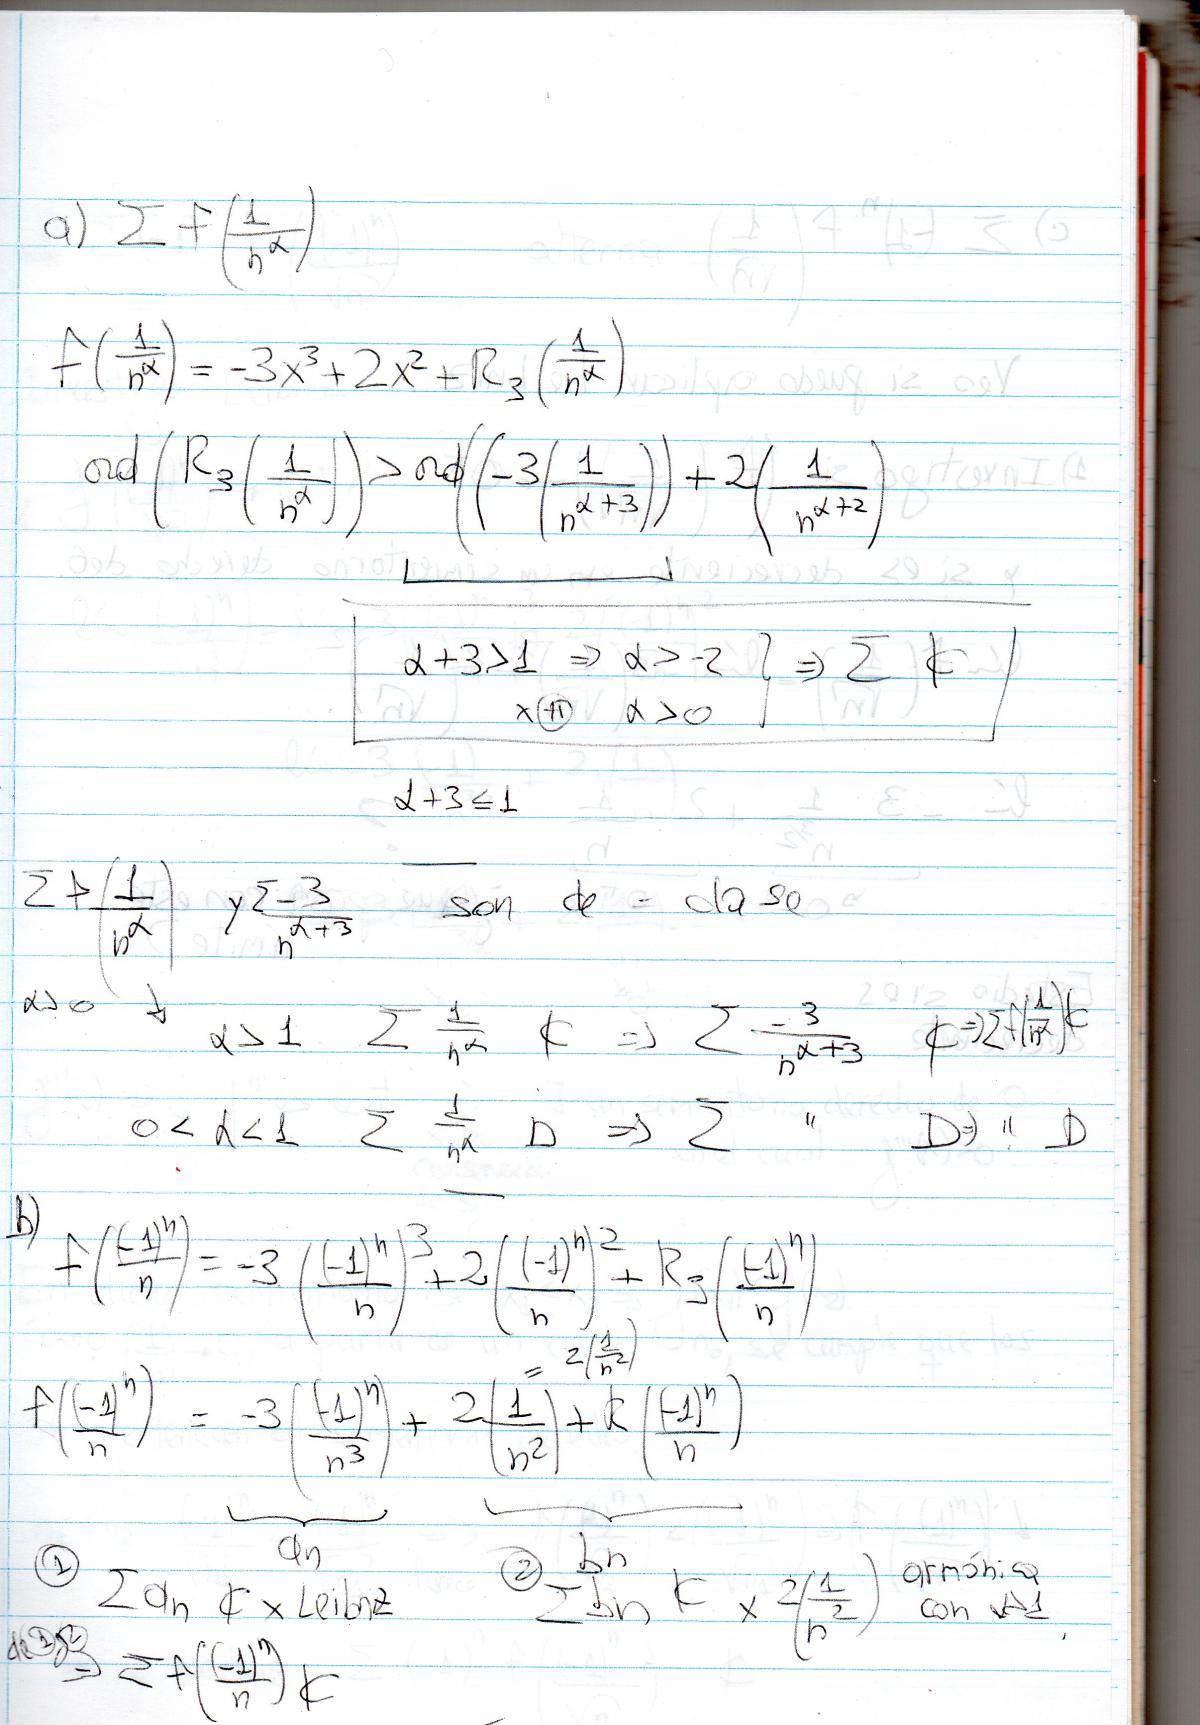 a) Σ f(1/n^α)
f(1/n^α) = -3x³ + 2x² + R₃(1/n^α)
ord(R₃(1/n^α)) > ord((-3(1/n^(α+3))) + 2(1/n^(α+2))
α+3>1 ⇒ α>-2 } ⇒ Σ ₵
x (H) α>0
α+3≤1
Σ f(1/n^α) y Σ -3/n^(α+3) son de = clase
α>0 ↓
α>1 Σ 1/n^α ₵ ⇒ Σ -3/n^(α+3) ₵ ⇒ Σ f(1/n^α) ₵
0<α<1 Σ 1/n^α D ⇒ Σ " D ⇒ " D
b)
f((-1)^n/n) = -3((-1)^n/n)³ + 2((-1)^n/n)² + R₃((-1)^n/n)
= 2(1/n²)
f((-1)^n/n) = -3((-1)^n/n³) + 2(1/n²) + R((-1)^n/n)
an bn
① Σ an ₵ x Leibniz ② Σ bn ₵ x 2(1/n²) armónica con α>1
de ① y ② ⇒ Σ f((-1)^n/n) ₵